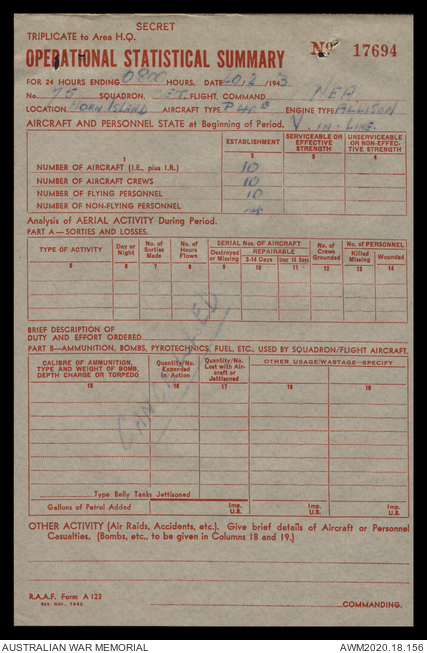 SECRET
TRIPLICATE to Area H.Q.
OPERATIONAL STATISTICAL SUMMARY No 17694
FOR 24 HOURS ENDING 0900 HOURS, DATE 10/2/1943
No. 75 SQUADRON, DET. FLIGHT, COMMAND NEA
LOCATION HORN ISLAND AIRCRAFT TYPE P40E ENGINE TYPE ALLISON
AIRCRAFT AND PERSONNEL STATE at Beginning of Period. V. IN-LINE.
ESTABLISHMENT SERVICEABLE OR EFFECTIVE STRENGTH UNSERVICEABLE OR NON-EFFECTIVE STRENGTH
1 2 3 4
NUMBER OF AIRCRAFT (I.E., plus I.R.) 10
NUMBER OF AIRCRAFT CREWS 10
NUMBER OF FLYING PERSONNEL 10
NUMBER OF NON-FLYING PERSONNEL
Analysis of AERIAL ACTIVITY During Period.
PART A—SORTIES AND LOSSES.
TYPE OF ACTIVITY Day or Night No. of Sorties Made No. of Hours Flown SERIAL Nos. OF AIRCRAFT Destroyed or Missing REPAIRABLE 2-14 Days Over 14 Days No. of Crews Grounded No. of PERSONNEL Killed Missing Wounded
5 6 7 8 9 10 11 12 13 14
BRIEF DESCRIPTION OF
DUTY AND EFFORT ORDERED
PART B—AMMUNITION, BOMBS, PYROTECHNICS, FUEL, ETC., USED BY SQUADRON/FLIGHT AIRCRAFT.
CALIBRE OF AMMUNITION, TYPE AND WEIGHT OF BOMB, DEPTH CHARGE OR TORPEDO Quantity/No. Expended in Action Quantity/No. Lost with Aircraft or Jettisoned OTHER USAGE/WASTAGE—SPECIFY
15 16 17 18 19
CANCELLED
Type Belly Tanks Jettisoned
Gallons of Petrol Added Imp. U.S. Imp. U.S. Imp. U.S.
OTHER ACTIVITY (Air Raids, Accidents, etc.). Give brief details of Aircraft or Personnel
Casualties. (Bombs, etc., to be given in Columns 18 and 19.)
R.A.A.F. Form A 123
Rev. Nov., 1942.
COMMANDING.
AUSTRALIAN WAR MEMORIAL AWM2020.18.156